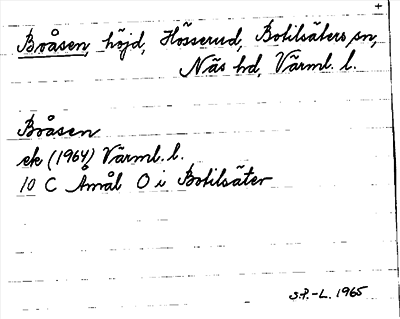 Bråsen, höjd, Hösserud, Botilsäters sn,
Näs hd, Värml. l.
Bråsen
ek (1964) Värml. l.
10 C Åmål O i Botilsäter
S.P.-L. 1965